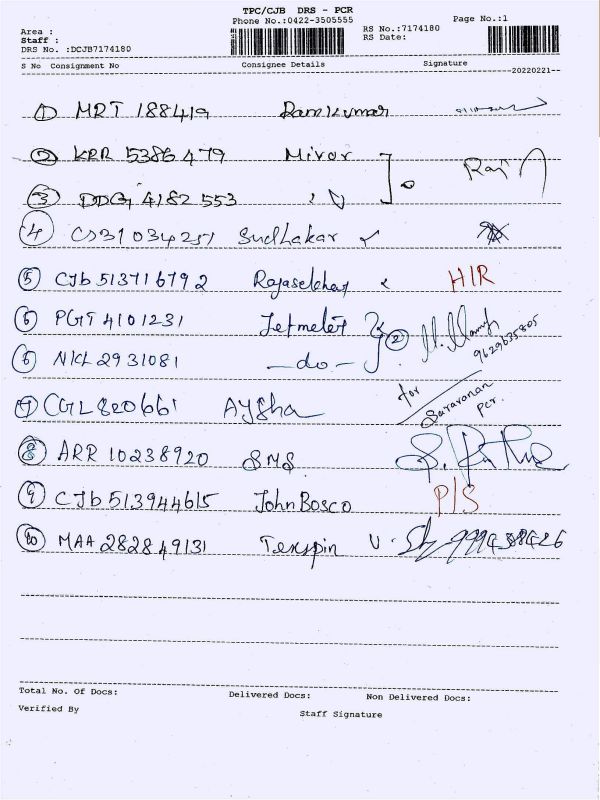 TPC/CJB DRS - PCR
Phone No.:0422-3505555
Page No.:1
Area :
Staff :
DRS No. :DCJB7174180
RS No.:7174180
RS Date:
S No Consignment No Consignee Details Signature
20220221
1 MRT 188419 Ramkumar
2 KRR 5386479 Miror Raj
3 DDG 4182553 〃
4 Sudhakar
5 CJb 513716792 H/R
6 PGT 4101231 2 9629635805
6 NKL 2931081 -do-
7 CGL 820661 Aysha for Saravanan Pcr.
8 ARR 10238920 SMS
9 CJb 513944615 John Bosco P/S
10 MAA 282849131 Texspin
Total No. Of Docs: Delivered Docs: Non Delivered Docs:
Verified By Staff Signature